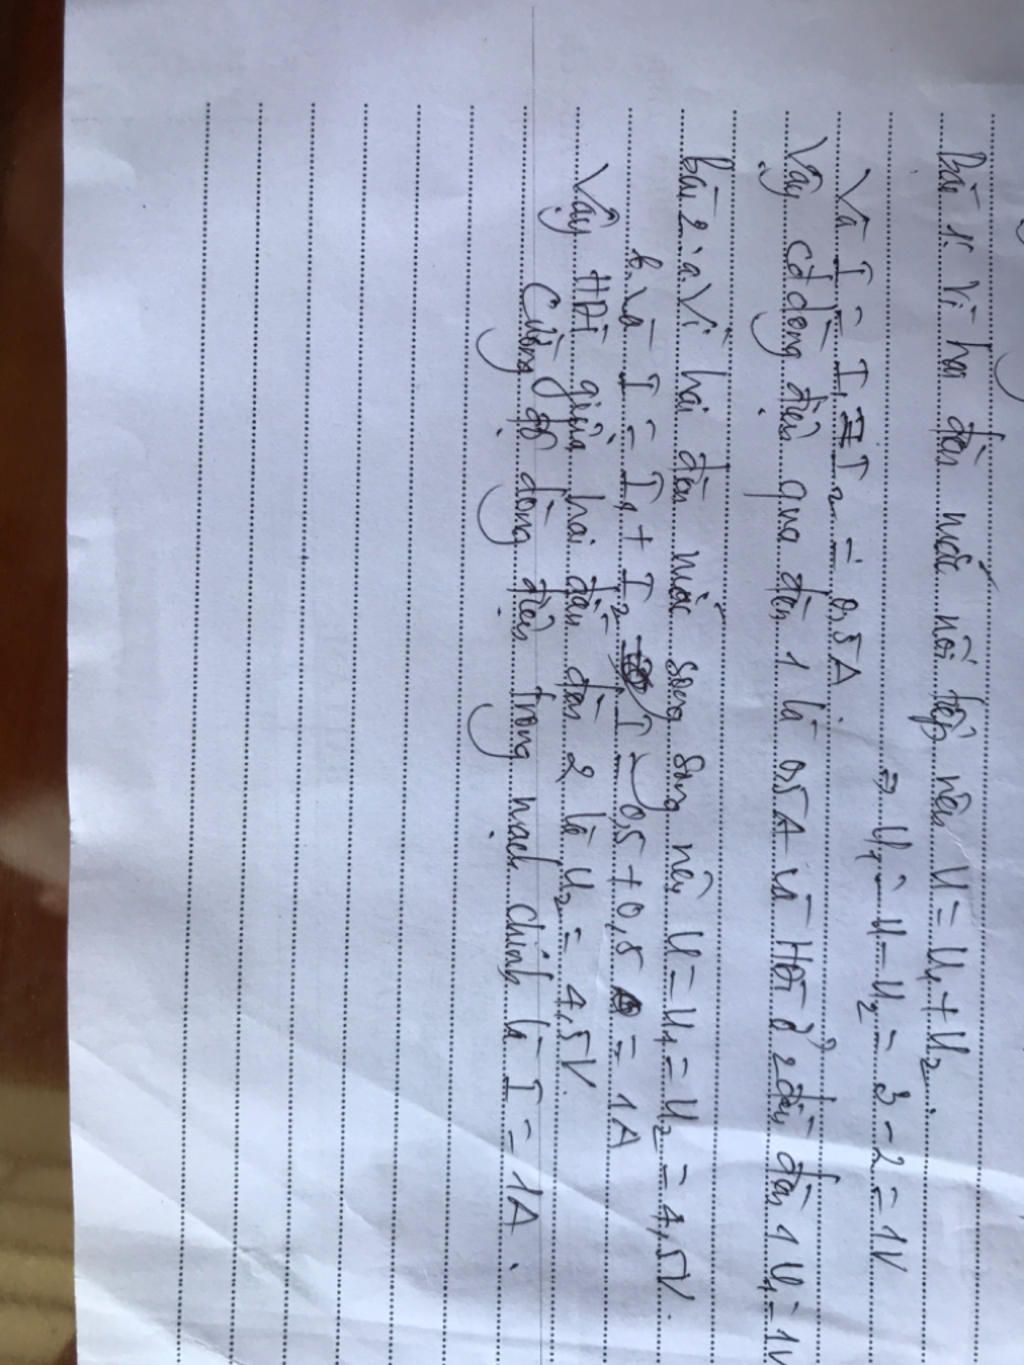 Bài 1: Vì hai đèn mắc nối tiếp nên U = U1 + U2.
⇒ U1 = U - U2 = 3 - 2 = 1V
Và I = I1 = I2 = 0,5A.
Vậy cđ dòng điện qua đèn 1 là 0,5A và HĐT ở 2 đầu đèn 1 U1 = 1V
Bài 2: a. Vì hai đèn mắc song song nên U = U1 = U2 = 4,5V.
b. Và I = I1 + I2 I = 0,5 + 0,5 = 1A
Vậy HĐT giữa hai đầu đèn 2 là U2 = 4,5V.
Cường độ dòng điện trong mạch chính là I = 1A.